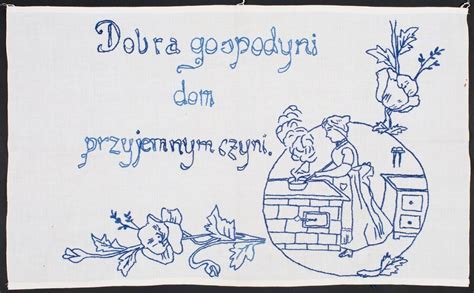 Dobra gospodyni
dom
przyjemnym czyni.